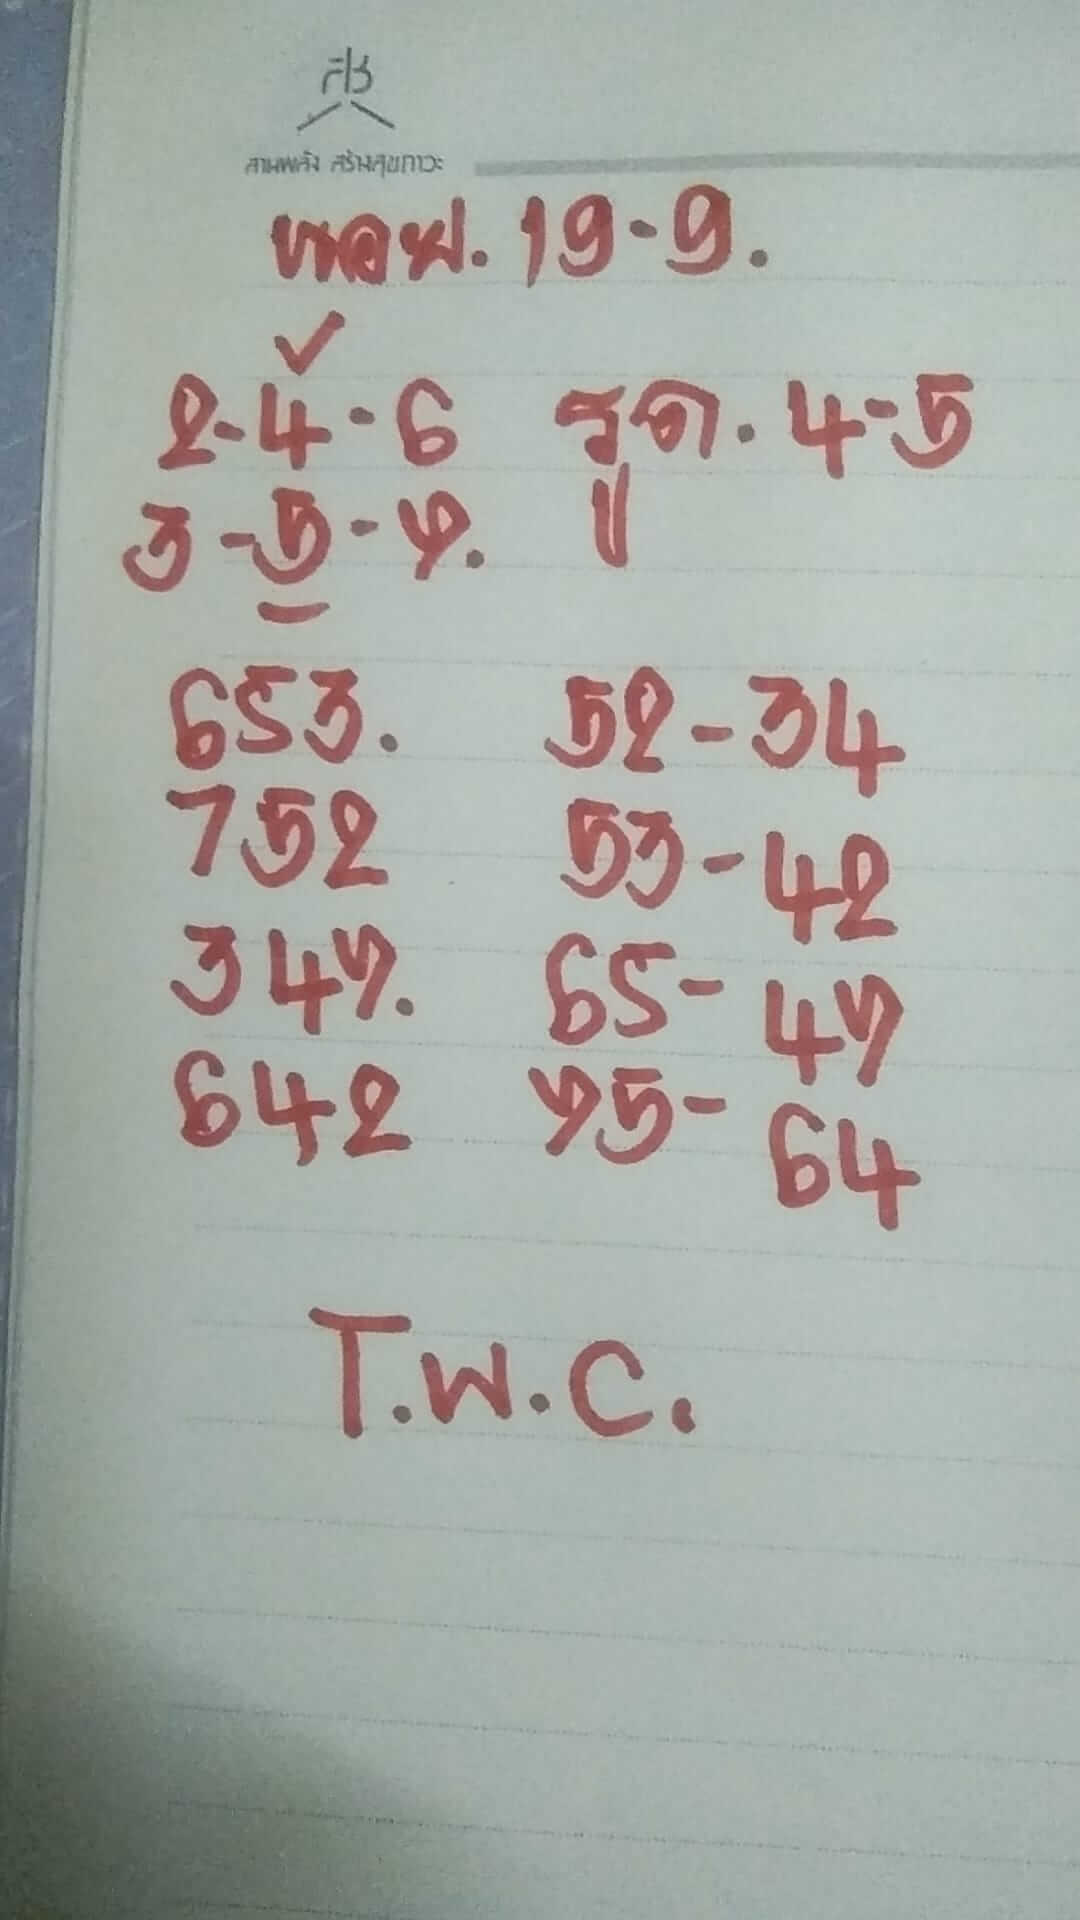 สามพลัง สร้างสุขภาวะ
19-9.
2-4-6 รูด. 4-5
3-5-7.
653. 52-34
752 53-42
347. 65-47
642 75-64
T.W.C.